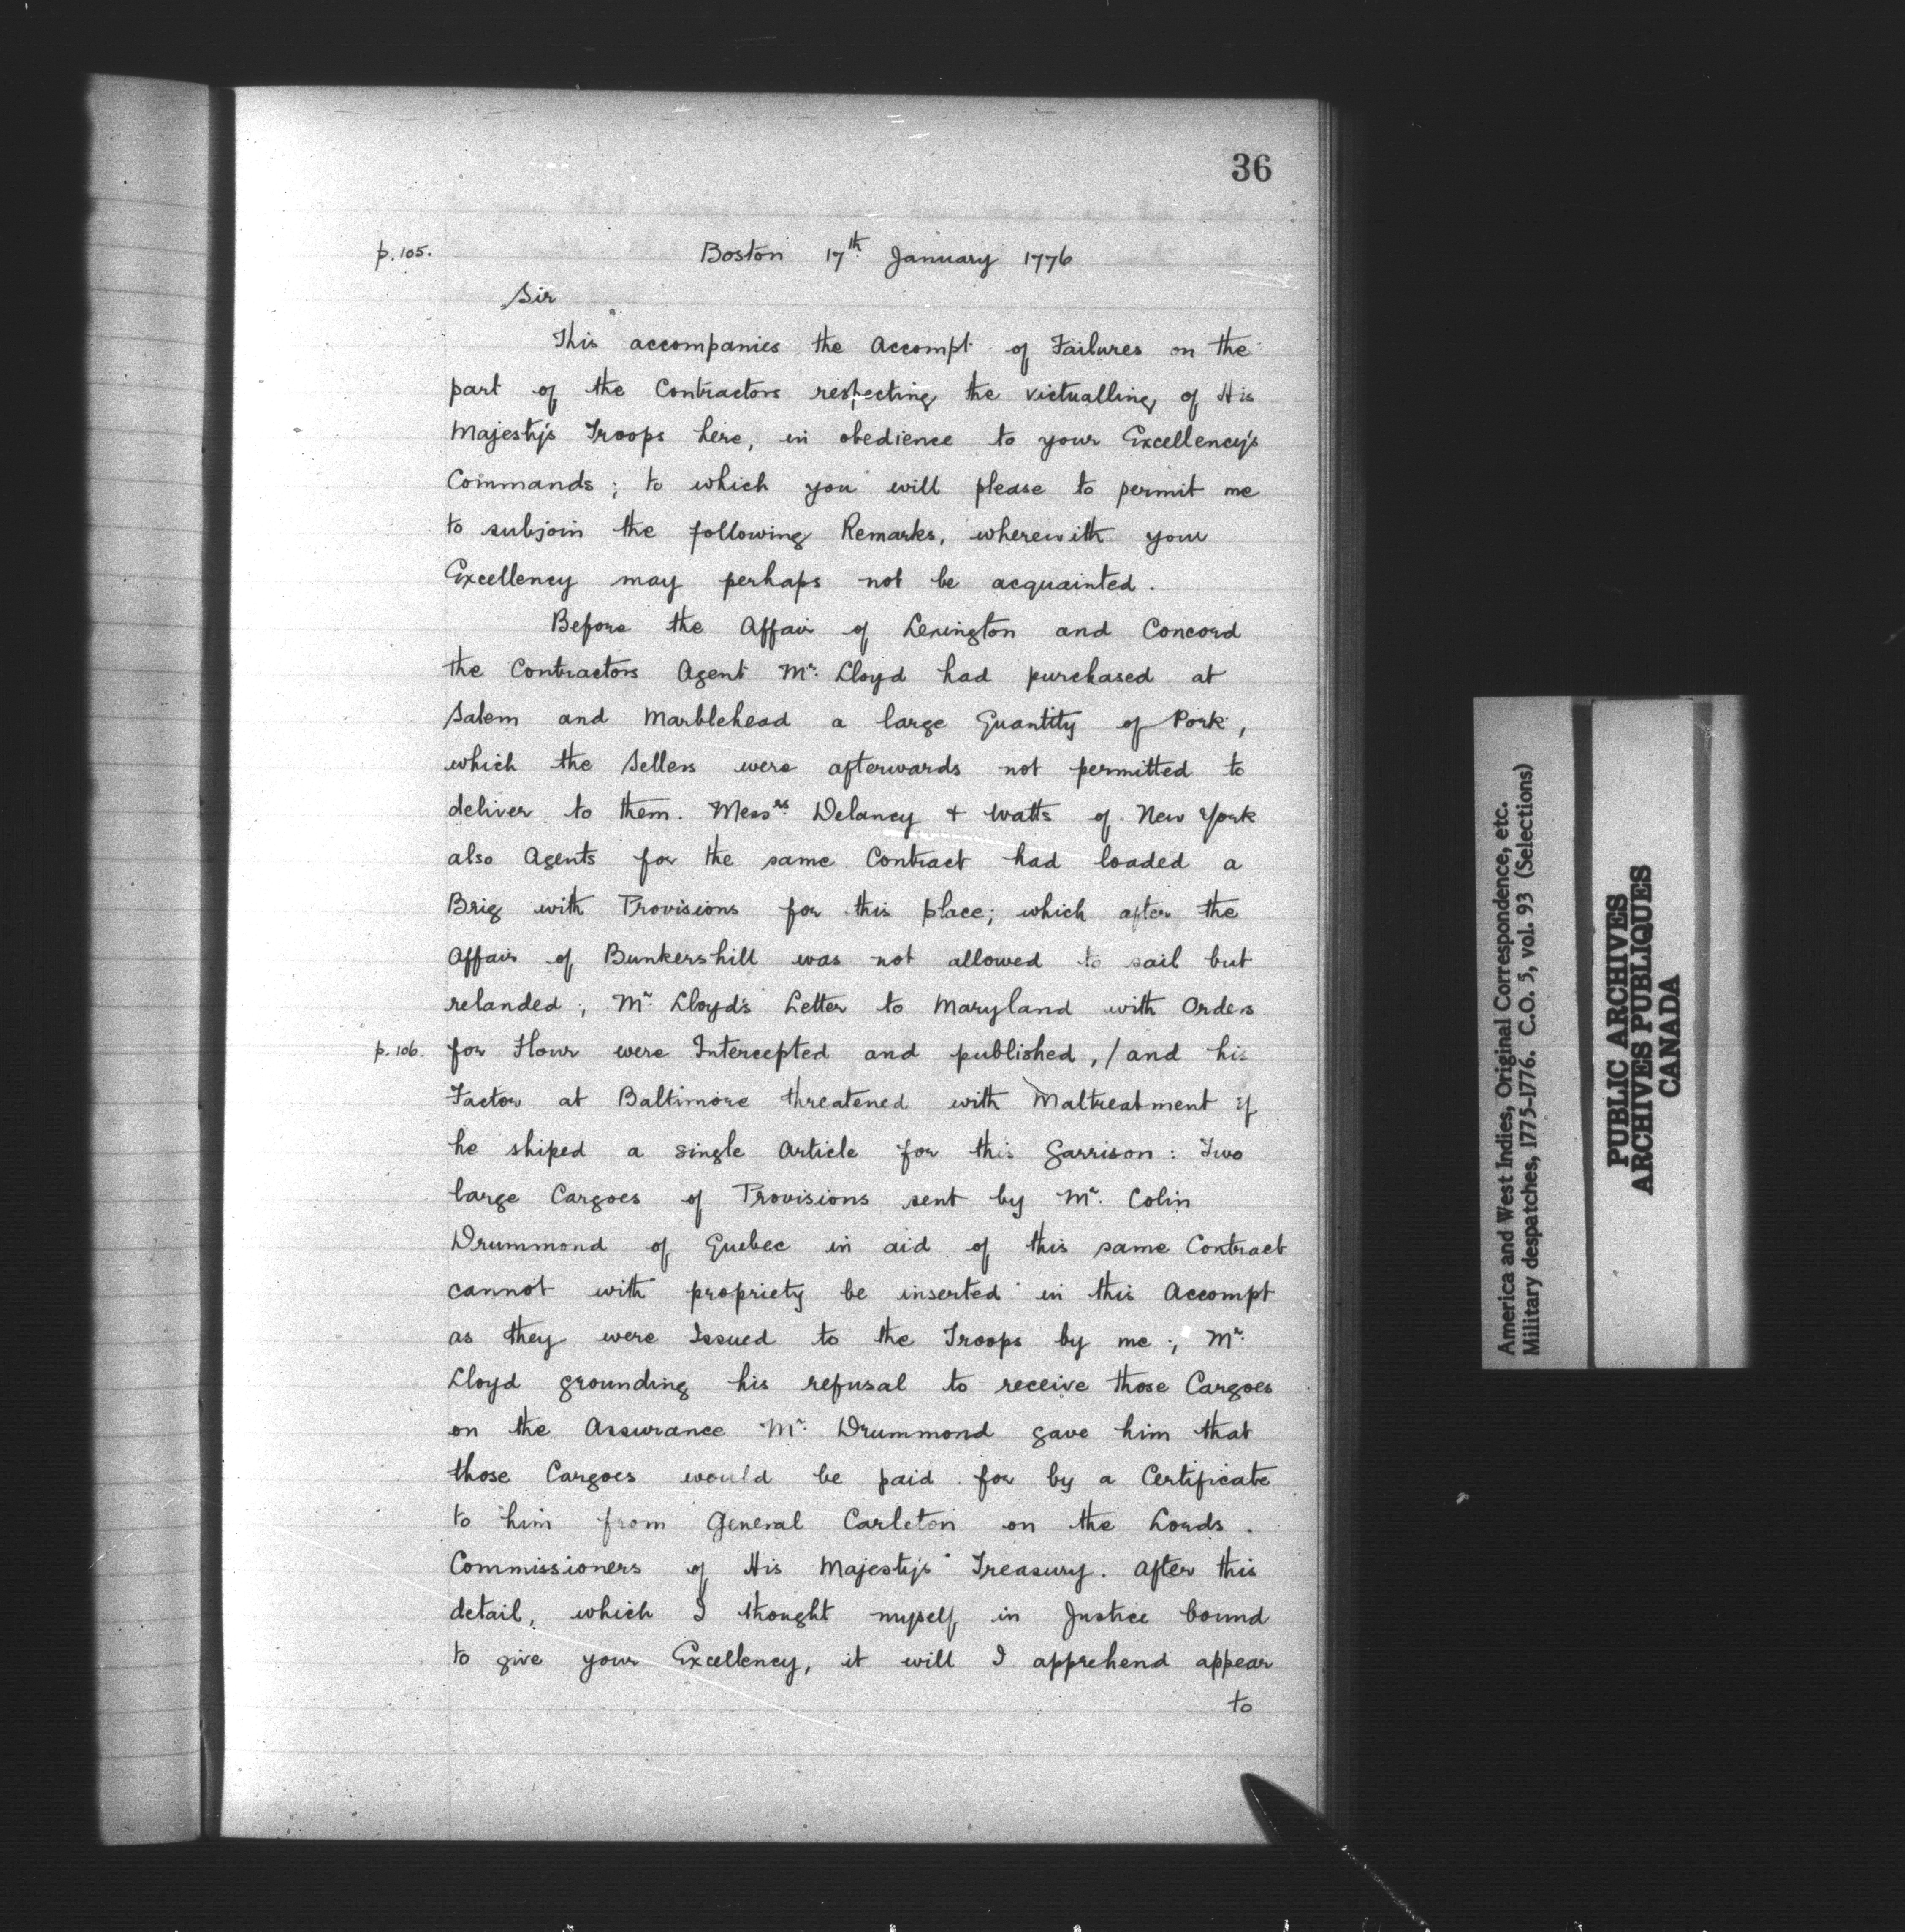 36
p. 105.
Boston 17th January 1776
Sir
This accompanies the Accompt of Failures on the
part of the Contractors respecting the victualling of His
Majesty's Troops here, in obedience to your Excellency's
Commands; to which you will please to permit me
to subjoin the following Remarks, wherewith your
Excellency may perhaps not be acquainted.
Before the Affair of Lexington and Concord
the Contractors Agent Mr. Lloyd had purchased at
Salem and Marblehead a large Quantity of Pork,
which the Sellers were afterwards not permitted to
deliver to them. Messrs. Delancy & Watts of New York
also Agents for the same Contract had loaded a
Brig with Provisions for this place; which after the
Affair of Bunkershill was not allowed to sail but
relanded; Mr. Lloyd's Letter to Maryland with Orders
p. 106. for Flour were Intercepted and published, / and his
Factor at Baltimore threatened with Maltreatment if
he shiped a single Article for this Garrison: Two
large Cargoes of Provisions sent by Mr. Colin
Drummond of Quebec in aid of this same Contract
cannot with propriety be inserted in this Accompt
as they were Issued to the Troops by me; Mr.
Lloyd grounding his refusal to receive those Cargoes
on the Assurance Mr. Drummond gave him that
those Cargoes would be paid for by a Certificate
to him from General Carleton on the Lords
Commissioners of His Majesty's Treasury. After this
detail, which I thought myself in Justice bound
to give your Excellency, it will I apprehend appear
to
America and West Indies, Original Correspondence, etc.
Military despatches, 1775-1776. C.O. 5, vol. 93 (Selections)
PUBLIC ARCHIVES
ARCHIVES PUBLIQUES
CANADA